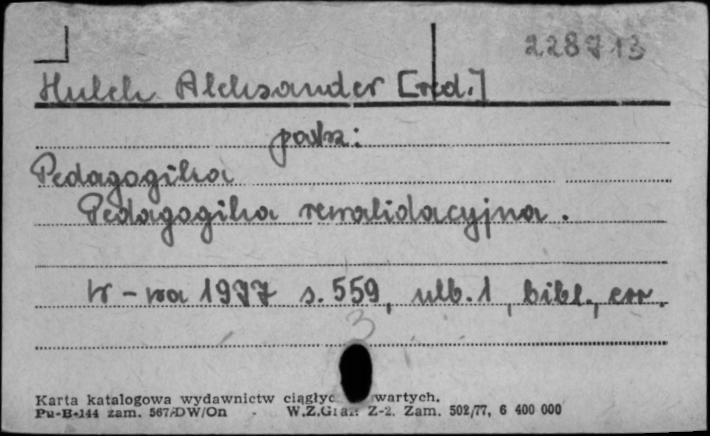 228713
Hulek Aleksander [red.]
patrz:
Pedagogika
Pedagogika rewalidacyjna.
W-wa 1977 s. 559, nlb. 1, bibl., err.
3
Karta katalogowa wydawnictw wartych.
Pu-B-144 zam. 567/DW/On - W.Z.Graf. Z-2. Zam. 502/77, 6 400 000